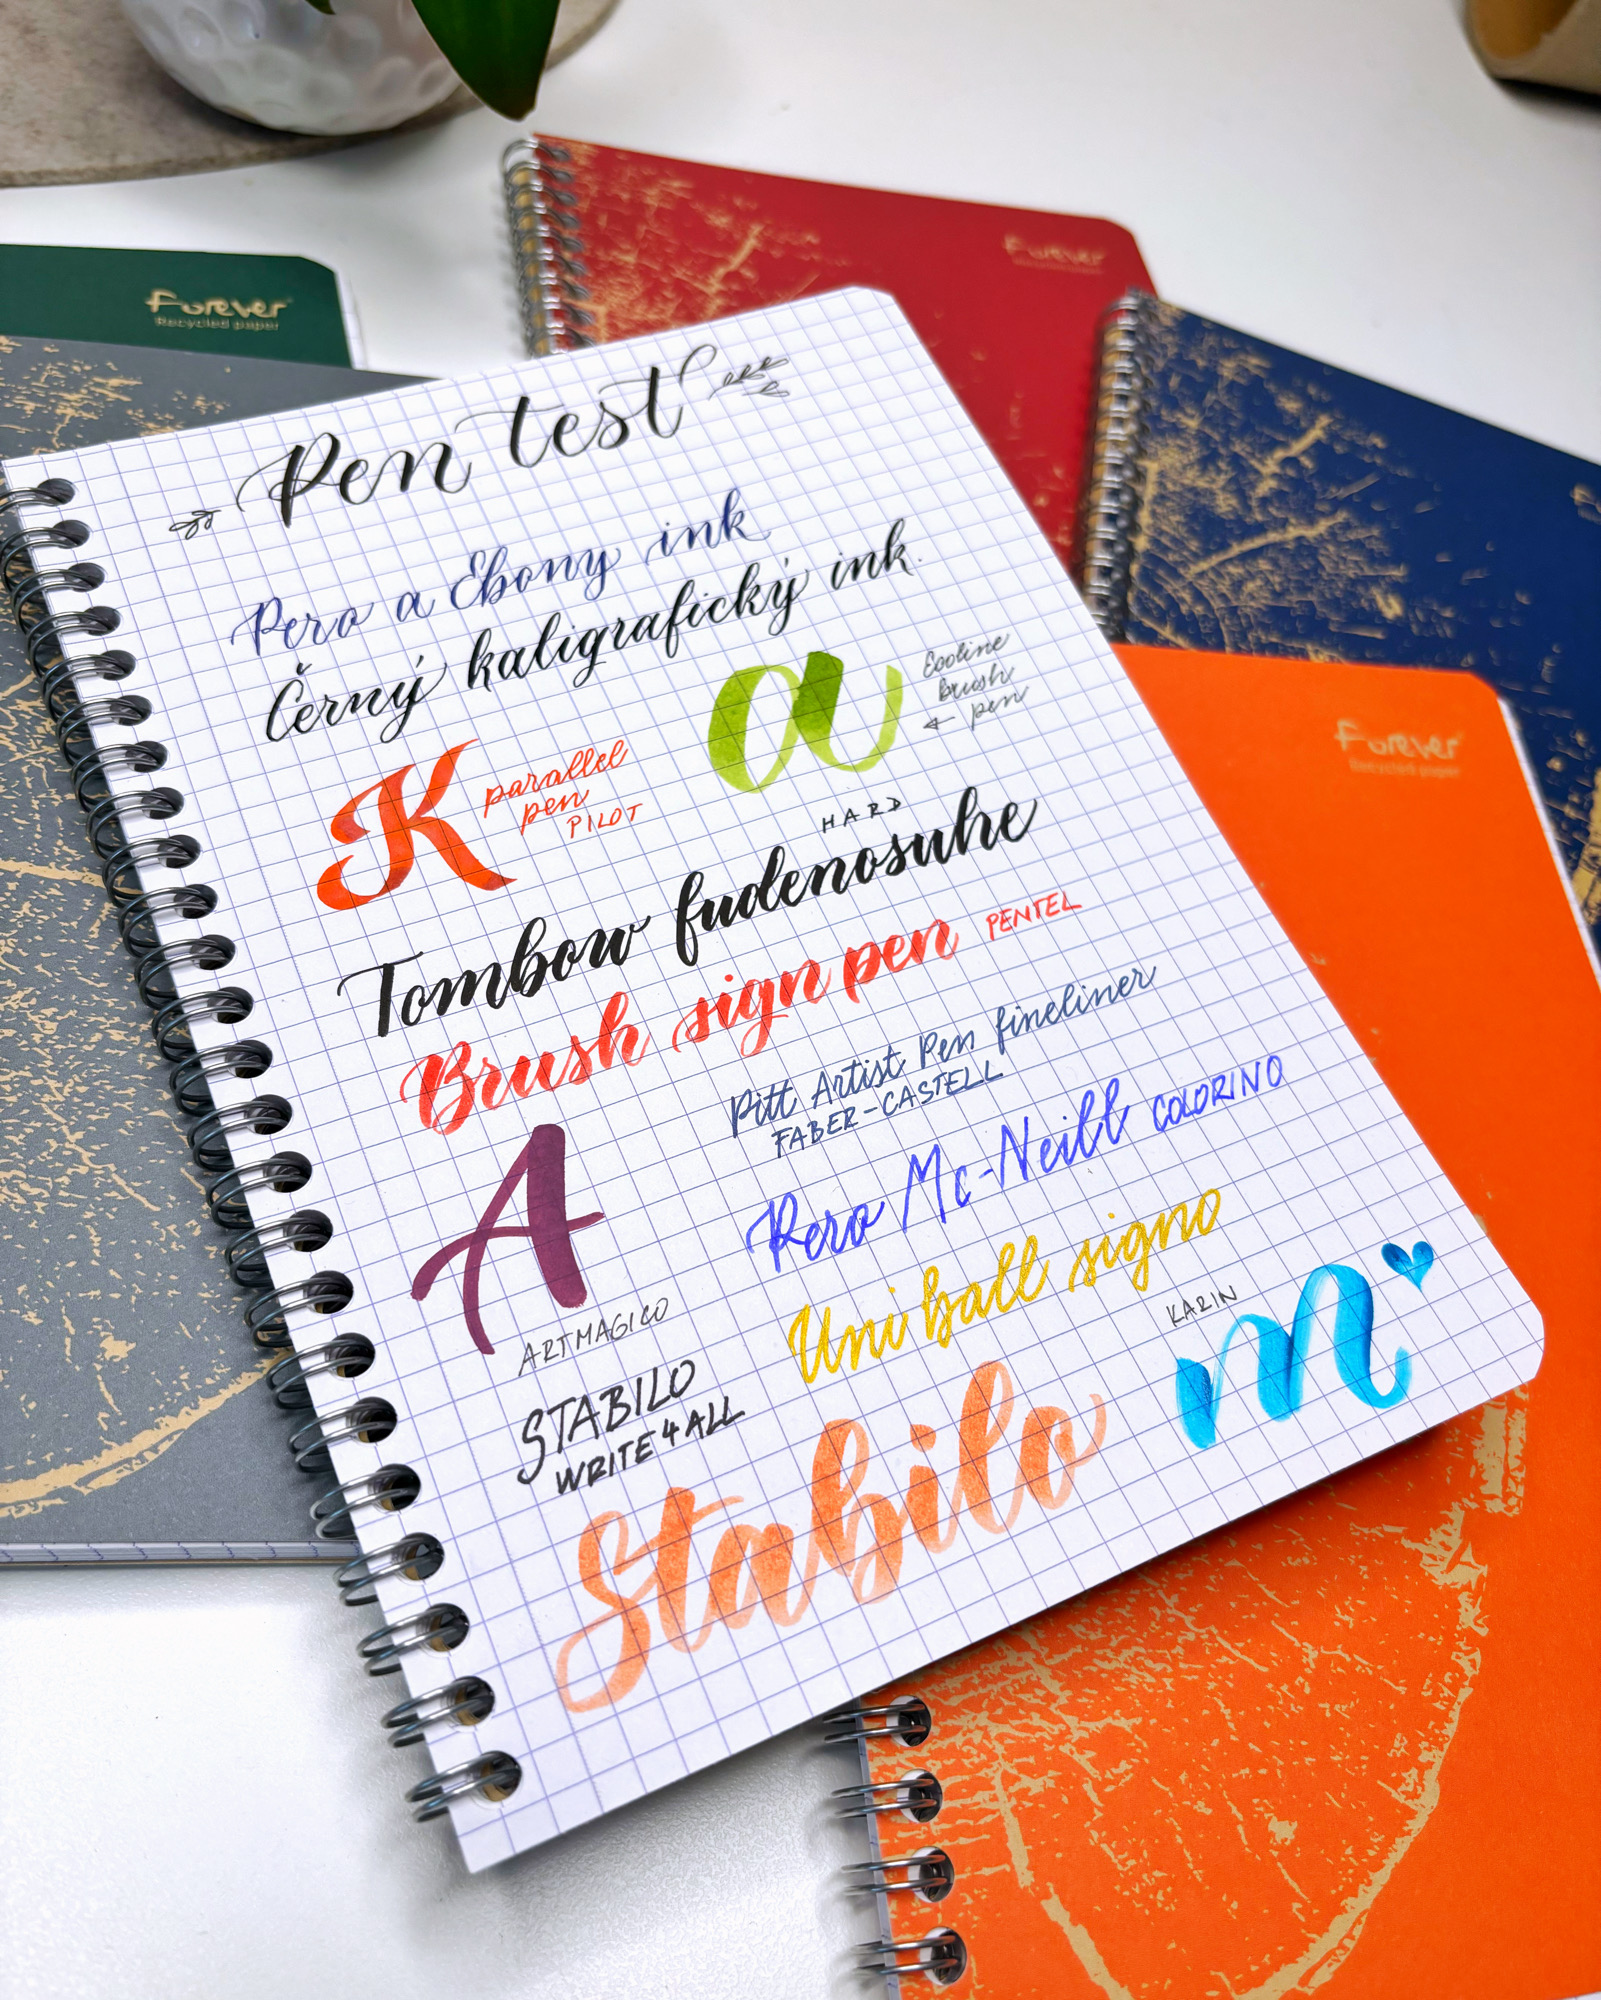 Forever
Recycled paper
Forever
Pen test
Pero a Ebony ink
Černý kaligrafický ink.
a
Ecoline
brush
pen
K
parallel
pen
PILOT
HARD
Tombow fudenosuhe
Brush sign pen PENTEL
Pitt Artist Pen fineliner
FABER-CASTELL
A
ARTMAGICO
Pero Mc-Neill COLORINO
Uni ball signo
KARIN
m
STABILO
WRITE 4 ALL
Stabilo
Forever
Recycled paper